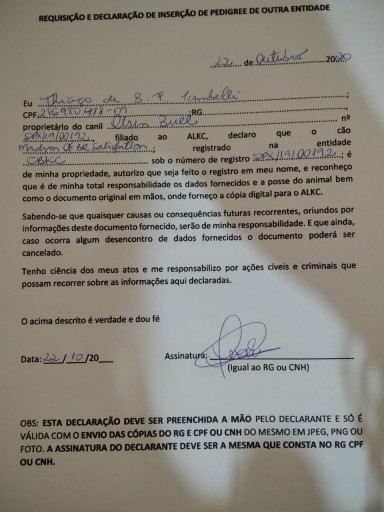 REQUISIÇÃO E DECLARAÇÃO DE INSERÇÃO DE PEDIGREE DE OUTRA ENTIDADE
22 de Outubro 2020
Eu Thiago de S F
CPF ;RG
proprietário do canil nº
SPX/19/00192, filiado ao ALKC, declaro que o cão
Of Be ; registrado na entidade
CBKC sob o número de registro SPX/19/00192; é
de minha propriedade, autorizo que seja feito o registro em meu nome, e reconheço
que é de minha total responsabilidade os dados fornecidos e a posse do animal bem
como o documento original em mãos, onde forneço a cópia digital para o ALKC.
Sabendo-se que quaisquer causas ou consequências futuras recorrentes, oriundos por
informações deste documento fornecido, serão de minha responsabilidade. E que ainda,
caso ocorra algum desencontro de dados fornecidos o documento poderá ser
cancelado.
Tenho ciência dos meus atos e me responsabilizo por ações cíveis e criminais que
possam recorrer sobre as informações aqui declaradas.
O acima descrito é verdade e dou fé
Data: 22/10/20 Assinatura:
(Igual ao RG ou CNH)
OBS: ESTA DECLARAÇÃO DEVE SER PREENCHIDA A MÃO PELO DECLARANTE E SÓ É
VÁLIDA COM O ENVIO DAS CÓPIAS DO RG E CPF OU CNH DO MESMO EM JPEG, PNG OU
FOTO. A ASSINATURA DO DECLARANTE DEVE SER A MESMA QUE CONSTA NO RG CPF
OU CNH.